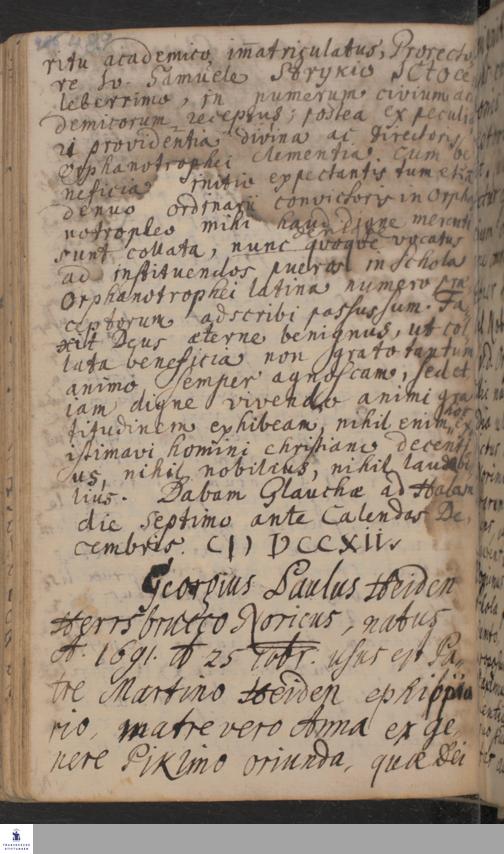 ritu academico, im̄atriculatus, Prorecto
re Samuele Strykio JCto ce
leberrimo, in numerum civium ac
demicorum receptus; postea ex peculia
ri providentia divina ac Directoris
Orphanotrophei Clementia cum be
neficia initio expectantis tum etia
denuo ordinarii convictoris in Orpha
notropheo mihi haud digne merenti
sunt collata, nunc quoque vocatus
ad instituendos pueros in Schola
Orphanotrophei latina numero præ
ceptorum adscribi passus sum. Fa
xit Deus æterne benignus, ut col
lata beneficia non grato tantum
animo semper agnoscam, sed et
iam digne vivendo animi gra
titudinem exhibeam, nihil enim hoc ex
istimavi homini christiano decenti
us, nihil nobilius, nihil laudabi
lius. Dabam Glauchæ ad Halam
die septimo ante Calendas De
cembris. CIƆ DCCXII.
Georgius Paulus Heiden
Herrsbrucco Noricus, natus
A. 1691. d 25 usus est Pa
tre Martino Heiden ephippia
rio, matre vero Anna ex ge
nere Piklino oriunda, quæ Dei
FRANCKESCHE
STIFTUNGEN